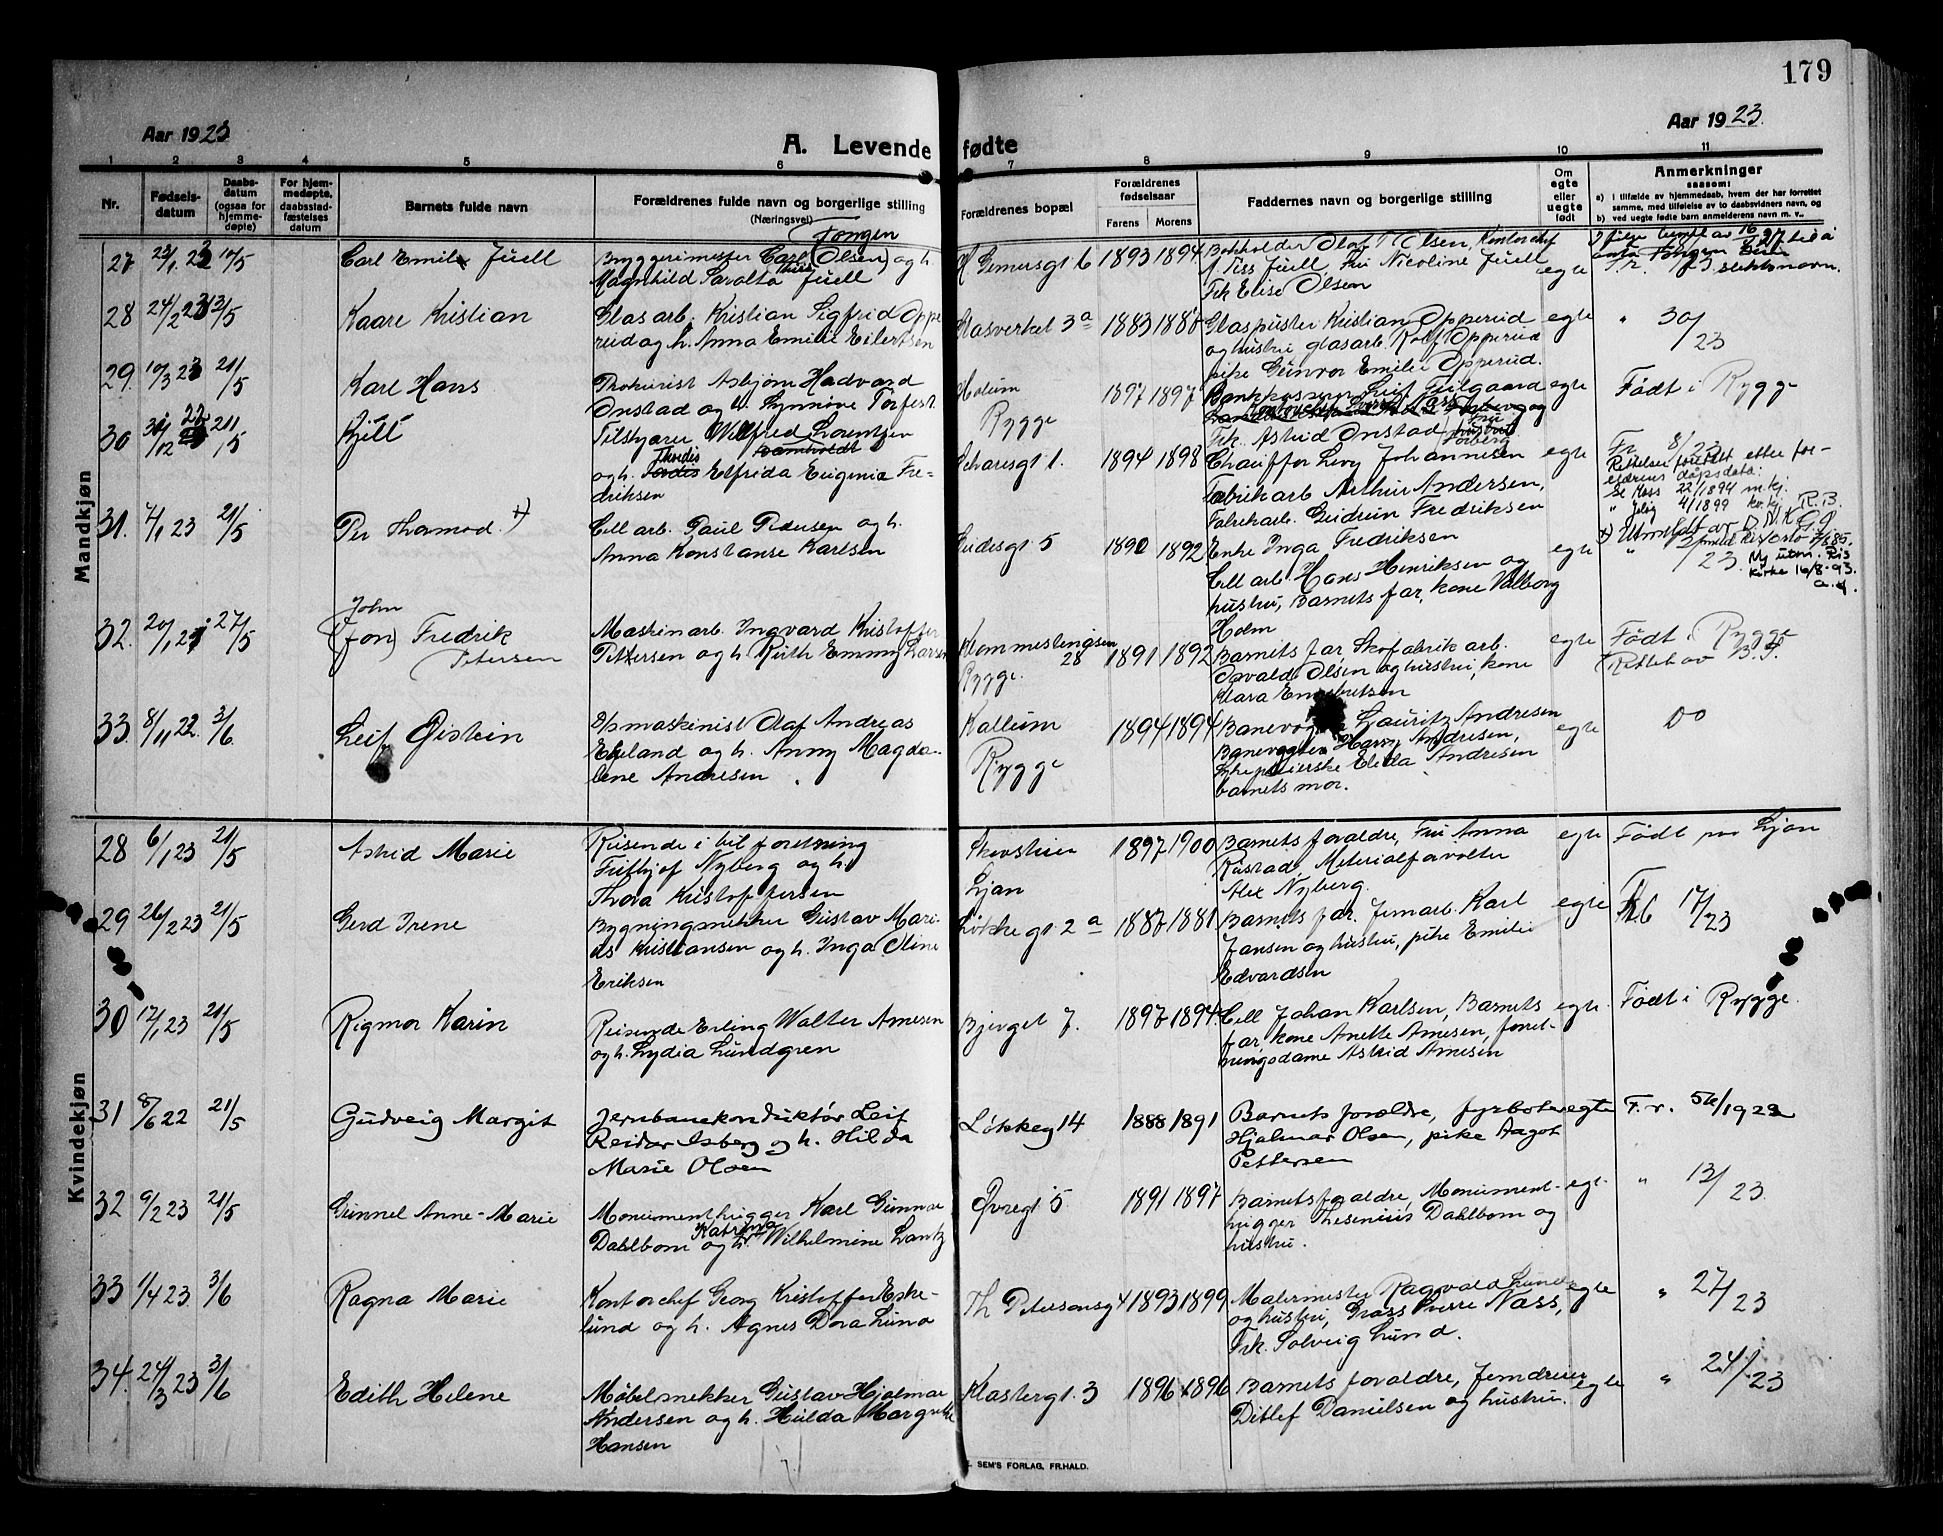 179
Aar 1923
A. Levende fødte
Aar 1923.
1 2 3 4 5 6 7 8 9 10 11
Nr.
Fødsels-
datum
Daabs-
datum
(ogsaa for
hjemme-
døpte)
For hjem-
medøpte,
daabsstad-
fæstelses
datum
Barnets fulde navn
Forældrenes fulde navn og borgerlige stilling
(Næringsvei)
Forældrenes bopæl
Forældrenes
fødselsaar
Farens
Morens
Faddernes navn og borgerlige stilling
Om
egte
eller
uegte
født
Anmerkninger
saasom:
a) i tilfælde av hjemmedaab, hvem der har forrettet
samme, med tilføielse av to daabsvidners navn, og
b) ved uegte fødte barn anmelderens navn m. v..
Mandkjøn
Tongen
27 10/5 Carl Emil Juell
Byggerimester Carl (Olsen) og h.
Magnhild Juell
1893 1894
Bokholder Olaf T Olsen, Kontorchef
Juell, Fru Nicoline Juell
Frk Elise Olsen
egte
slektsnavn.
28 24/2 23 13/5 Kaare Kristian
Glasarb. Kristian Sigfrid Oppe
rud og h. Anna Emilie Eilertsen
Glasverket 3a 1883 1888
Glaspuster Kristian Opperud
og hustru glasarb. Rolf Opperud
pike Gunvor Emilie Opperud.
egte " 30/23
29. 10/3 23 21/5 Karl Hans
Prokurist Asbjørn Hadvard
Onstad og h. Synnøve Torfest
Holum
Rygge
1897 1897
Frk. Astrid Onstad
egte Født i Rygge
30 31/12 22 21/5 Kjell
Tilskjærer Wilfred Lorentzen
og h. Thordis Elfrida Eugenia Fre-
driksen
1. 1894 1898
Chauffør Levy Johannesen
Fabrikarb Arthur Andersen,
Fabrikarb. Gudrun Fredriksen
egte Fr 8/23
Rettelser foretatt etter for-
eldrens dåpsdata:
Se Moss 22/1894 m.kj.
" Jeløy 4/1899 kv.kj. R.B.
31. 4/1 23 21/5 Per Thormod. +)
Cell arb. Paul Pedersen og h.
Anna Konstanse Karlsen
5 1890 1892
Enke Inga Fredriksen
Cell arb Hans Henriksen og
hustru, Barnets far, kone Valborg
Holm
egte
" 23. Ny utm. Ris
kirke 16/8-93.
32. 20/1 23 27/5 John
(Jon) Fredrik
Petersen
Maskinarb. Ingvard Kristoffer
Pettersen og h. Ruth Emmy Larsen
28
Rygge.
1891 1892
Barnets far Skofabrik arb.
Osvald Olsen og hustru, kone
Klara Engebretsen
egte Født i Rygge
Rettet av B.J.
33. 8/11 22. 3/6 Leif Øistein
D/s maskinist Olaf Andreas
Egeland og h. Anny Magda-
lene Andresen
Kallum
Rygge
1894 1894
Banevogter Lauritz Andresen
Banevogter Harry Andresen,
Sykepleierske Elida Andresen
barnets mor.
egte Do
Kvindekjøn
28 6/1 23 21/5 Astrid Marie
Reisende i bil forretning
Frithjof Nyberg og h.
Thora Kristoffersen
Ljan
1897 1900
Barnets foraldre, Fru Anna
Rustad, Materialforvalter
Alex Nyberg.
egte Født paa Ljan
29 26/2 23 21/5 Gerd Irene
Bygningsnekker Gustav Mari-
us Kristiansen og h. Inga Oline
Eriksen
Løkkegt. 2a 1887 1881
Barnets far. Jernarb. Karl
Jansen og hustru, pike Emilie
Edvardsen
egte 17/23
30 17/1 23 21/5 Rigmor Karin
Reisende Erling Walter Arnesen
og h. Lydia Lundgren
Bjerget 7. 1897 1894
Cell. Johan Karlsen, Barnets
far, kone Anette Arnesen, forret-
ningsdame Astrid Arnesen
egte. Født i Rygge.
31 8/6 22 21/5 Gudveig Margit
Jernbanekonduktør Leif
Reidar Isberg og h. Hilda
Marie Olsen
Løkkeg 14 1888 1891
Barnets foraldre, fyrbøter
Hjalmar Olsen, pike Aagot
Pettersen
egte F.r. 56/1922
32 9/2 23 21/5 Gunnel Anne-Marie
Monumenthugger Karl Gunnar
Katrina
Dahlbom og h. Wilhelmine Lantz
Øvregt 5 1891 1897
Barnets foraldre, Monument-
hugger Thesenius Dahlbom og
hustru.
egt. " 13/23.
33 1/4 23. 3/6 Ragna Marie
Kontorchef Georg Kristoffer Eske-
lund og h. Agnes Dora Lund
Th Petersensg 4 1893 1899
Malermester Ragvald Lund
og hustru, Gross Sverre Næss,
Frk. Solveig Lund.
egte " 27/23
34. 24/3 23 3/6 Edith Helene
Møbelsnekker Gustav Hjalmar
Andersen og h. Hulda Margrethe
Hansen
Klostergt. 3 1896 1896
Barnets foraldre, Jerndreier
Ditlef Danielsen og hustru.
egte " 24/23
SEM'S FORLAG, FR.HALD.